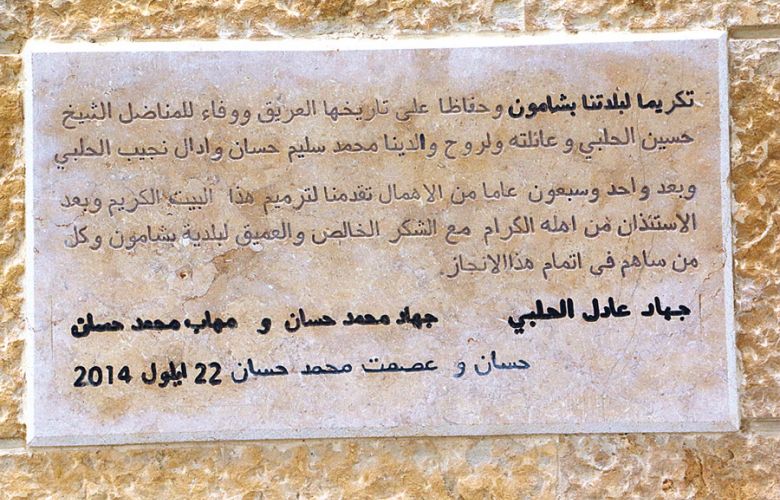 تكريما لبلدتنا بشامون وحفاظا على تاريخها العريق ووفاء للمناضل الشيخ
حسين الحلبي و عائلته ولروح والدينا محمد سليم حسان وادال نجيب الحلبي
وبعد واحد وسبعون عاما من الاهمال تقدمنا لترميم هذا البيت الكريم وبعد
الاستئذان من اهله الكرام مع الشكر الخالص والعميق لبلدية بشامون وكل
من ساهم في اتمام هذاالانجاز.
جهاد عادل الحلبي جهاد محمد حسان و مهاب محمد حسان
حسان و عصمت محمد حسان 22 ايلول 2014